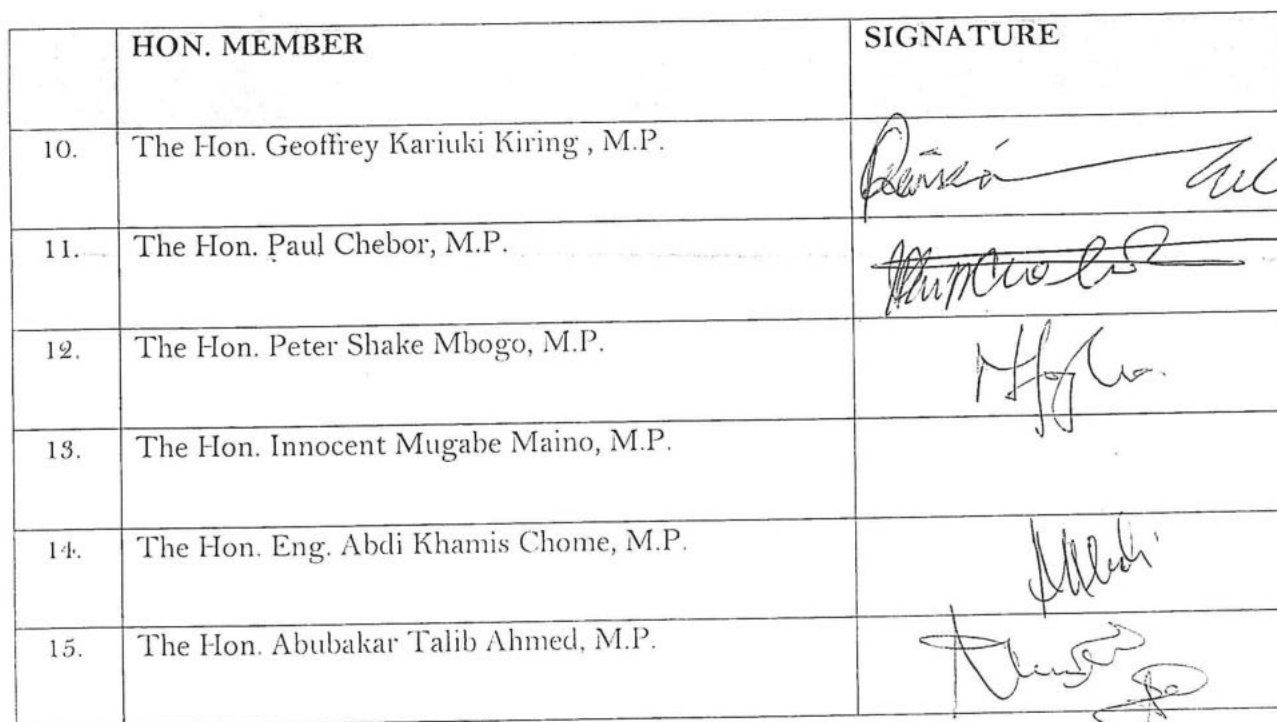 HON. MEMBER SIGNATURE
10. The Hon. Geoffrey Kariuki Kiring , M.P.
11. The Hon. Paul Chebor, M.P.
12. The Hon. Peter Shake Mbogo, M.P.
13. The Hon. Innocent Mugabe Maino, M.P.
14. The Hon. Eng. Abdi Khamis Chome, M.P.
15. The Hon. Abubakar Talib Ahmed, M.P.